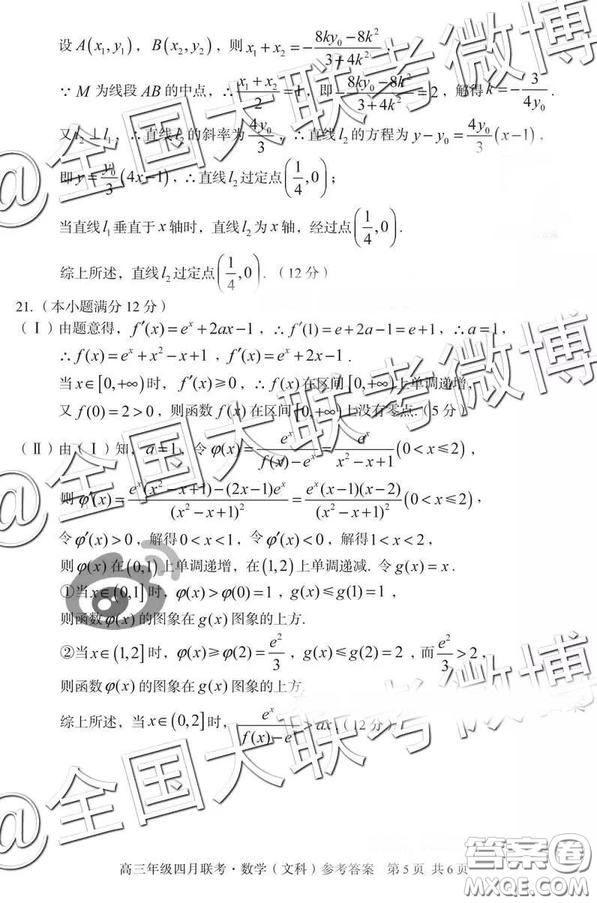 设 A(x₁,y₁)，B(x₂,y₂)，则 x₁+x₂=(8ky₀-8k²)/(3+4k²)．
∵ M 为线段 AB 的中点，∴ (x₁+x₂)/2=1，即 (8ky₀-8k²)/(3+4k²)=2，解得 k=-3/(4y₀)
又 l₂⊥l₁，∴直线 l₂ 的斜率为 4y₀/3，∴直线 l₂ 的方程为 y-y₀=(4y₀/3)(x-1)．
即 y=(y₀/3)(4x-1)，∴直线 l₂ 过定点(1/4,0)；
当直线 l₁ 垂直于 x 轴时，直线 l₂ 为 x 轴，经过点(1/4,0)．
综上所述，直线 l₂ 过定点(1/4,0)．（12 分）
21.（本小题满分 12 分）
（Ⅰ）由题意得，f′(x)=eˣ+2ax-1，∴f′(1)=e+2a-1=e+1，∴a=1，
∴f(x)=eˣ+x²-x+1，f′(x)=eˣ+2x-1．
当 x∈[0,+∞) 时，f′(x)≥0，∴f(x) 在区间[0,+∞)上单调递增，
又 f(0)=2>0，则函数 f(x) 在区间[0,+∞)上没有零点．（5 分）
（Ⅱ）由（Ⅰ）知，a=1，令 φ(x)=eˣ/(f(x)-eˣ)=eˣ/(x²-x+1)(0<x≤2)，
则 φ′(x)=[eˣ(x²-x+1)-(2x-1)eˣ]/(x²-x+1)²=eˣ(x-1)(x-2)/(x²-x+1)²(0<x≤2)，
令 φ′(x)>0，解得 0<x<1，令 φ′(x)<0，解得 1<x<2，
则 φ(x) 在(0,1)上单调递增，在(1,2)上单调递减．令 g(x)=x．
①当 x∈(0,1] 时，φ(x)>φ(0)=1，g(x)≤g(1)=1，
则函数 φ(x) 的图象在 g(x) 图象的上方．
②当 x∈(1,2] 时，φ(x)≥φ(2)=e²/3，g(x)≤g(2)=2，而 e²/3>2，
则函数 φ(x) 的图象在 g(x) 图象的上方．
综上所述，当 x∈(0,2] 时，eˣ/(f(x)-eˣ)>ax．（12 分）
高三年级四月联考·数学（文科）参考答案 第 5 页 共 6 页
@全国大联考微博
@全国大联考微博
@全国大联考微博
答案圈
MXQE.COM